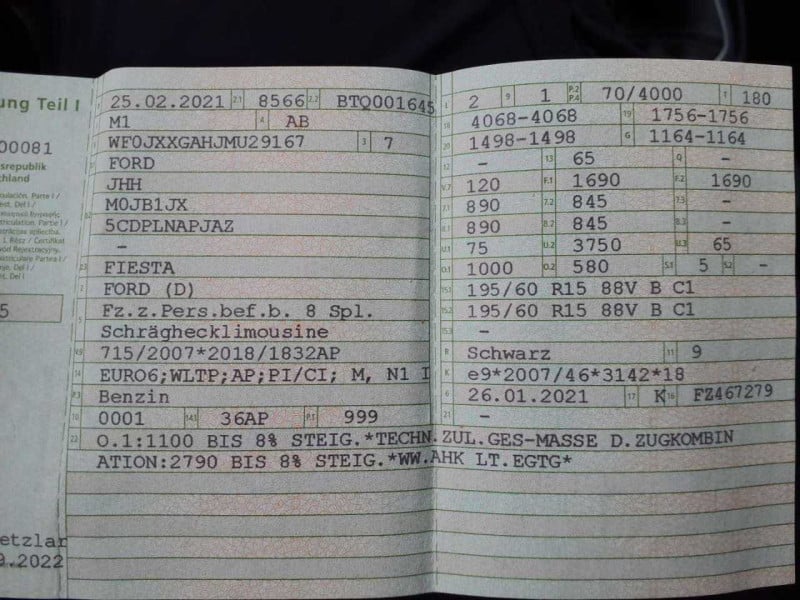 ung Teil I
00081
srepublik
chland
25.02.2021 2.1 8566 2.2 BTQ001645
M1 4 AB
WF0JXXGAHJMU29167 3 7
FORD
JHH
M0JB1JX
5CDPLNAPJAZ
-
FIESTA
FORD (D)
Fz.z.Pers.bef.b. 8 Spl.
Schräghecklimousine
715/2007*2018/1832AP
EURO6;WLTP;AP;PI/CI; M, N1 I
Benzin
0001 14.1 36AP P.1 999
L 2 9 1 P.2 P.4 70/4000 T 180
18 4068-4068 19 1756-1756
20 1498-1498 G 1164-1164
12 - 13 65 Q -
V.7 120 F.1 1690 F.2 1690
7.1 890 7.2 845 7.3 -
8.1 890 8.2 845 8.3 -
U.1 75 U.2 3750 U.3 65
O.1 1000 O.2 580 S.1 5 S.2 -
15.1 195/60 R15 88V B C1
15.2 195/60 R15 88V B C1
15.3 -
R Schwarz 11 9
K e9*2007/46*3142*18
6 26.01.2021 17 K 16 FZ467279
21 -
22 O.1:1100 BIS 8% STEIG.*TECHN.ZUL.GES-MASSE D.ZUGKOMBIN
ATION:2790 BIS 8% STEIG.*WW.AHK LT.EGTG*
5
etzlar
9.2022